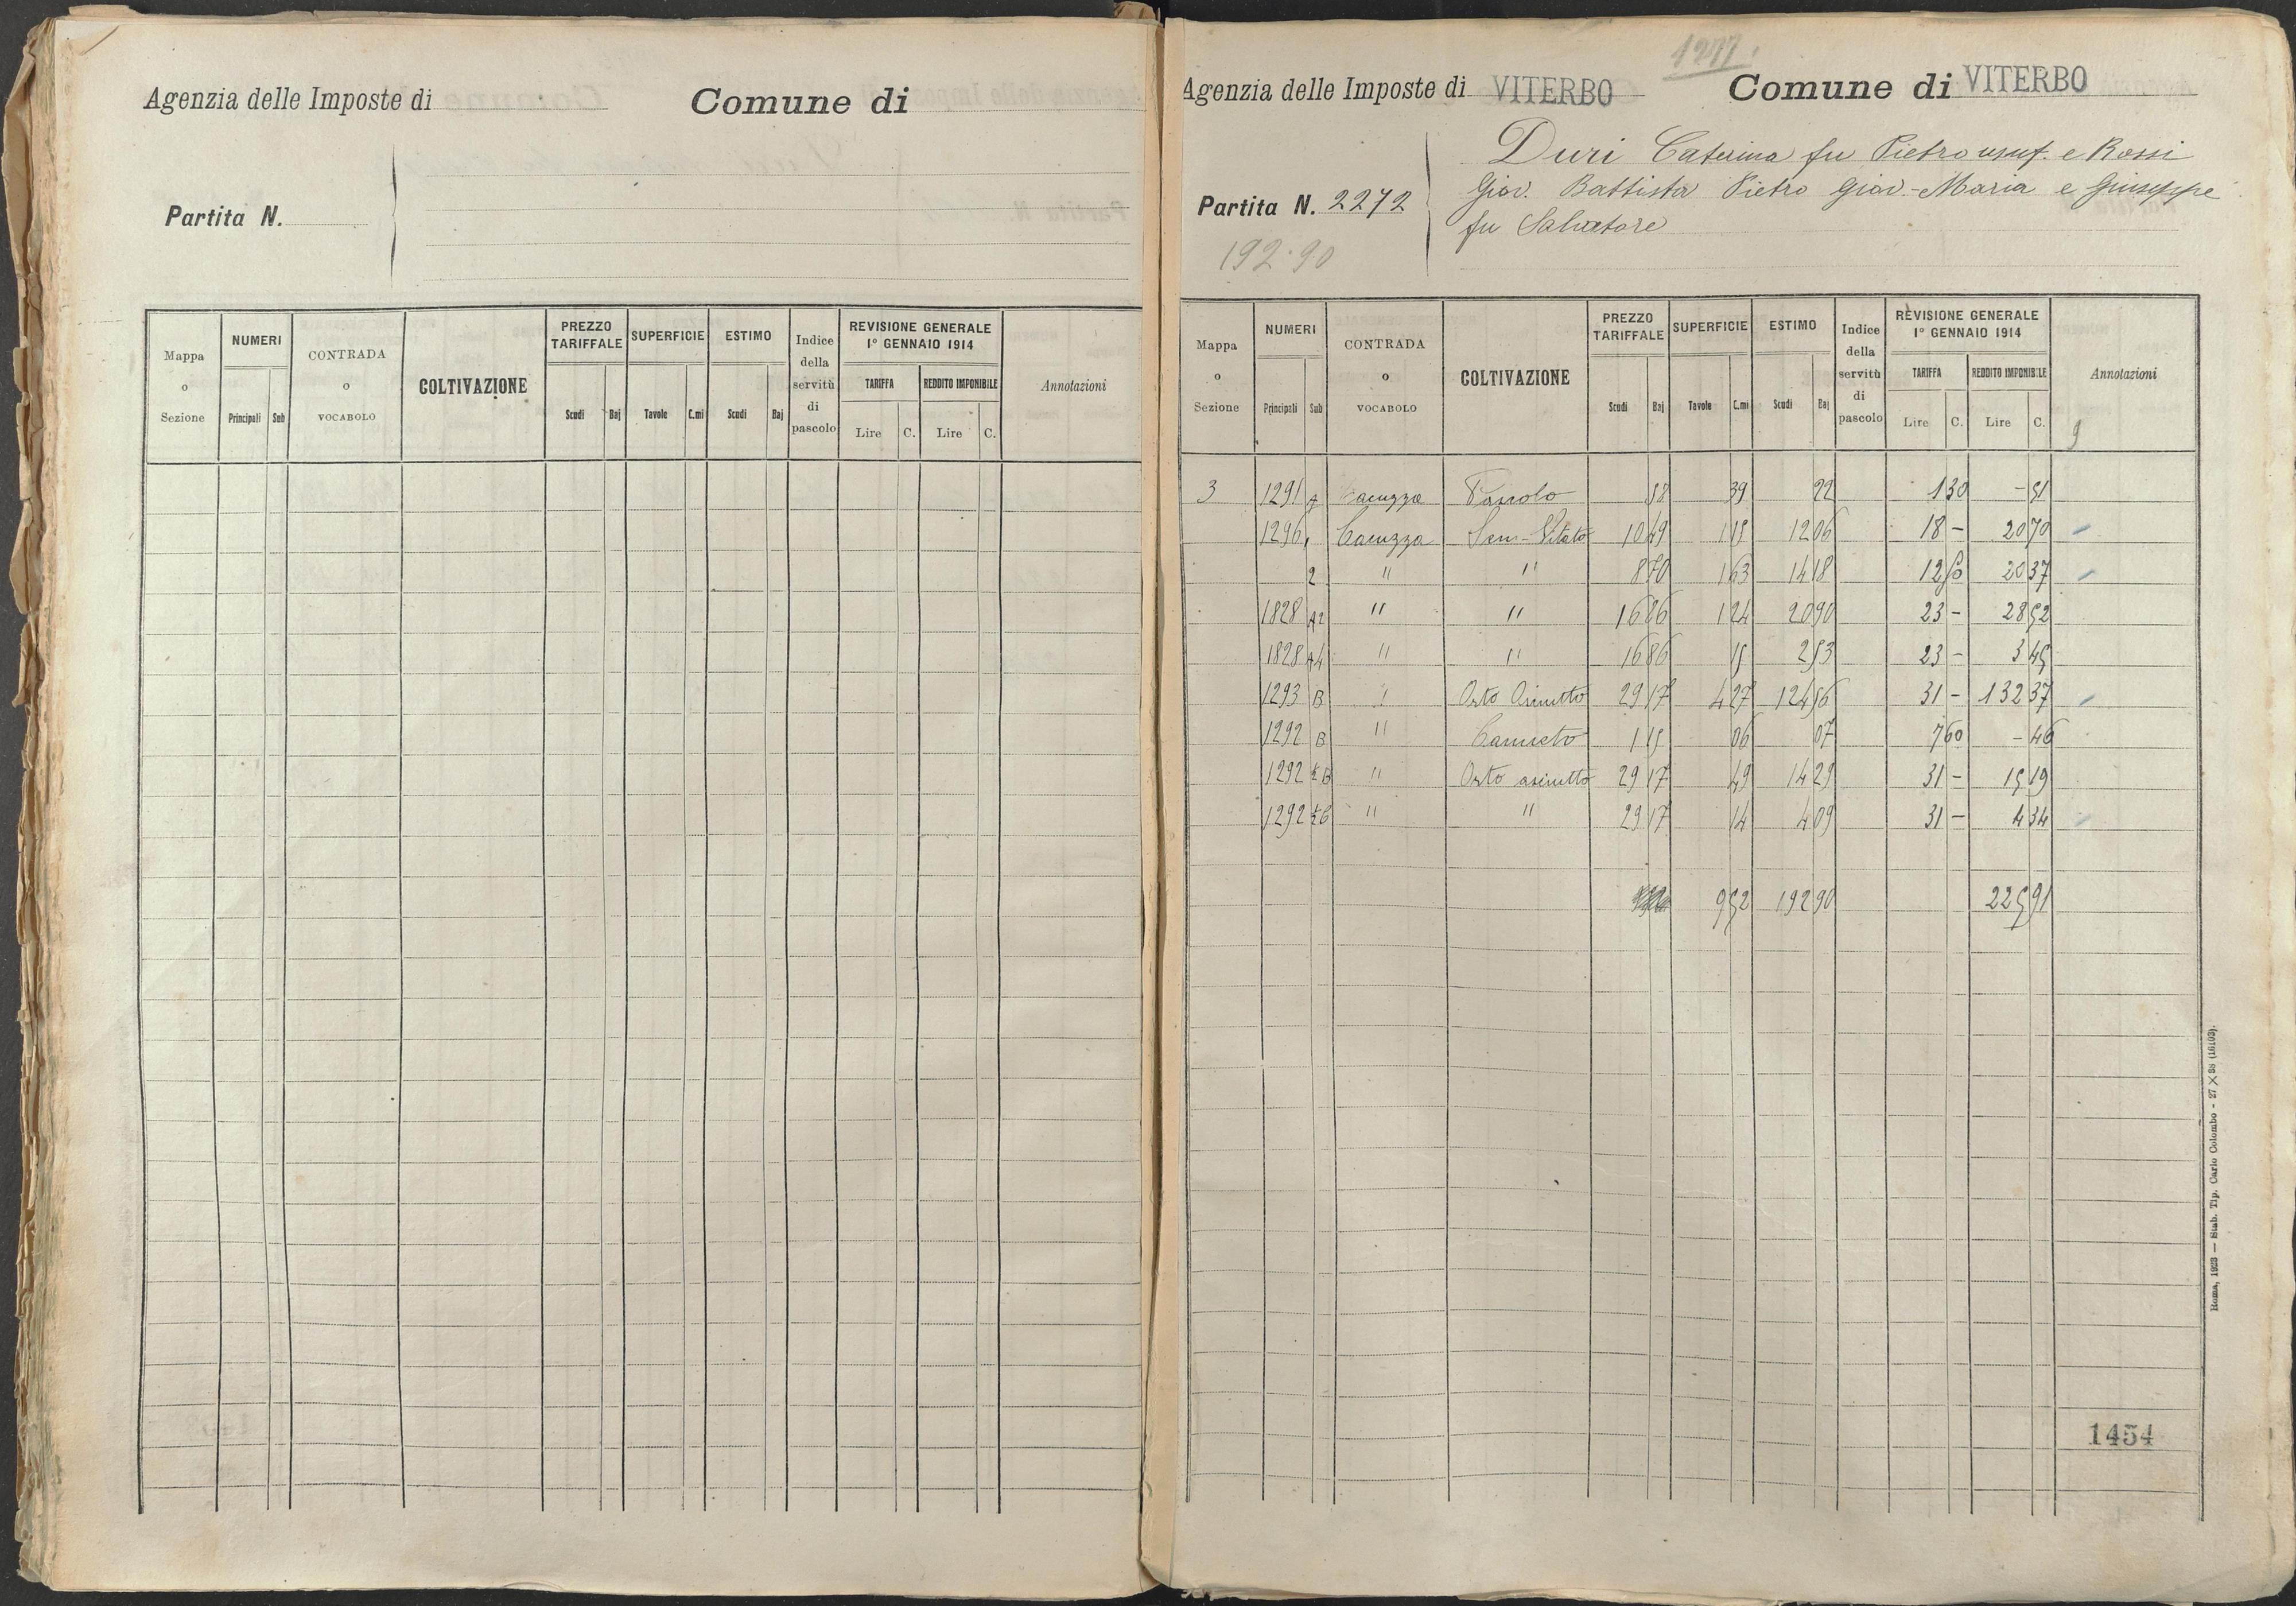 Agenzia delle Imposte di
Comune di
Partita N.
Mappa o Sezione | NUMERI Principali Sub | CONTRADA o VOCABOLO | COLTIVAZIONE | PREZZO TARIFFALE Scudi Baj | SUPERFICIE Tavole C.mi | ESTIMO Scudi Baj | Indice della servitù di pascolo | REVISIONE GENERALE 1° GENNAIO 1914 TARIFFA Lire C. REDDITO IMPONIBILE Lire C. | Annotazioni
1277
Agenzia delle Imposte di VITERBO Comune di VITERBO
Duri Caterina fu Pietro usuf. e Rossi
Partita N. 2272 Giov. Battista Pietro Giov.-Maria e Giuseppe
fu Salvatore
192.90
Mappa o Sezione | NUMERI Principali Sub | CONTRADA o VOCABOLO | COLTIVAZIONE | PREZZO TARIFFALE Scudi Baj | SUPERFICIE Tavole C.mi | ESTIMO Scudi Baj | Indice della servitù di pascolo | REVISIONE GENERALE 1° GENNAIO 1914 TARIFFA Lire C. REDDITO IMPONIBILE Lire C. | Annotazioni
9
3 1291 Cacuzza Pascolo 58 39 22 1 30 - 51
1296 1 Cacuzza Sem-Vitato 10 49 1 15 12 06 18 - 20 70
2 " " 8 70 1 63 14 18 12 50 20 37
1828 A2 " " 16 86 1 24 20 90 23 - 28 52
1828 A4 " " 16 86 15 2 53 23 - 3 45
1293 B " Orto Asciutto 29 17 4 27 124 56 31 - 132 37
1292 B " Canneto 1 15 06 07 7 60 - 46
1292 B " Orto asciutto 29 17 49 14 29 31 - 15 19
1292 " " 29 17 14 4 09 31 - 4 34
9 52 192 90 225 91
Roma, 1923 — Stab. Tip. Carlo Colombo - 27 × 38 (16103).
1454